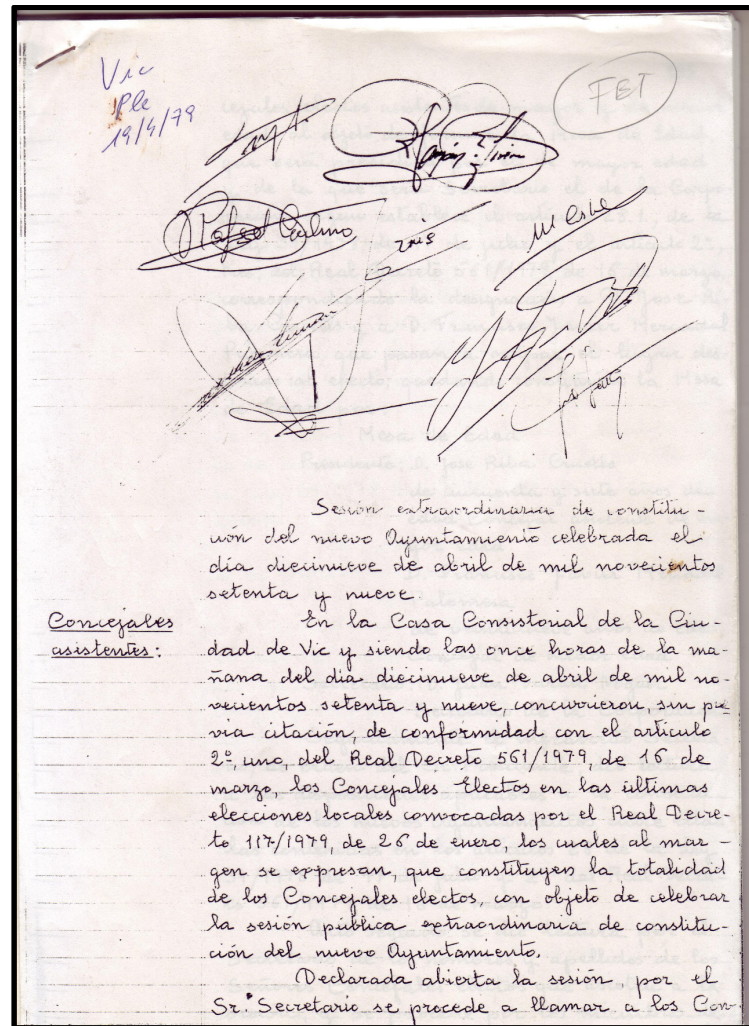 Vic
Ple
19/4/79
FET
Rafael
Sesión extraordinaria de constitu-
ción del nuevo Ayuntamiento celebrada el
día diecinueve de abril de mil novecientos
setenta y nueve.
Concejales
asistentes:
En la Casa Consistorial de la Ciu-
dad de Vic y siendo las once horas de la ma-
ñana del día diecinueve de abril de mil no-
vecientos setenta y nueve, concurrieron, sin pre
via citación, de conformidad con el artículo
2º, uno, del Real Decreto 561/1979, de 16 de
marzo, los Concejales Electos en las últimas
elecciones locales convocadas por el Real Decre-
to 117/1979, de 26 de enero, los cuales al mar-
gen se expresan, que constituyen la totalidad
de los Concejales electos con objeto de celebrar
la sesión pública extraordinaria de constitu-
ción del nuevo Ayuntamiento.
Declarada abierta la sesión, por el
Sr. Secretario se procede a llamar a los Con-